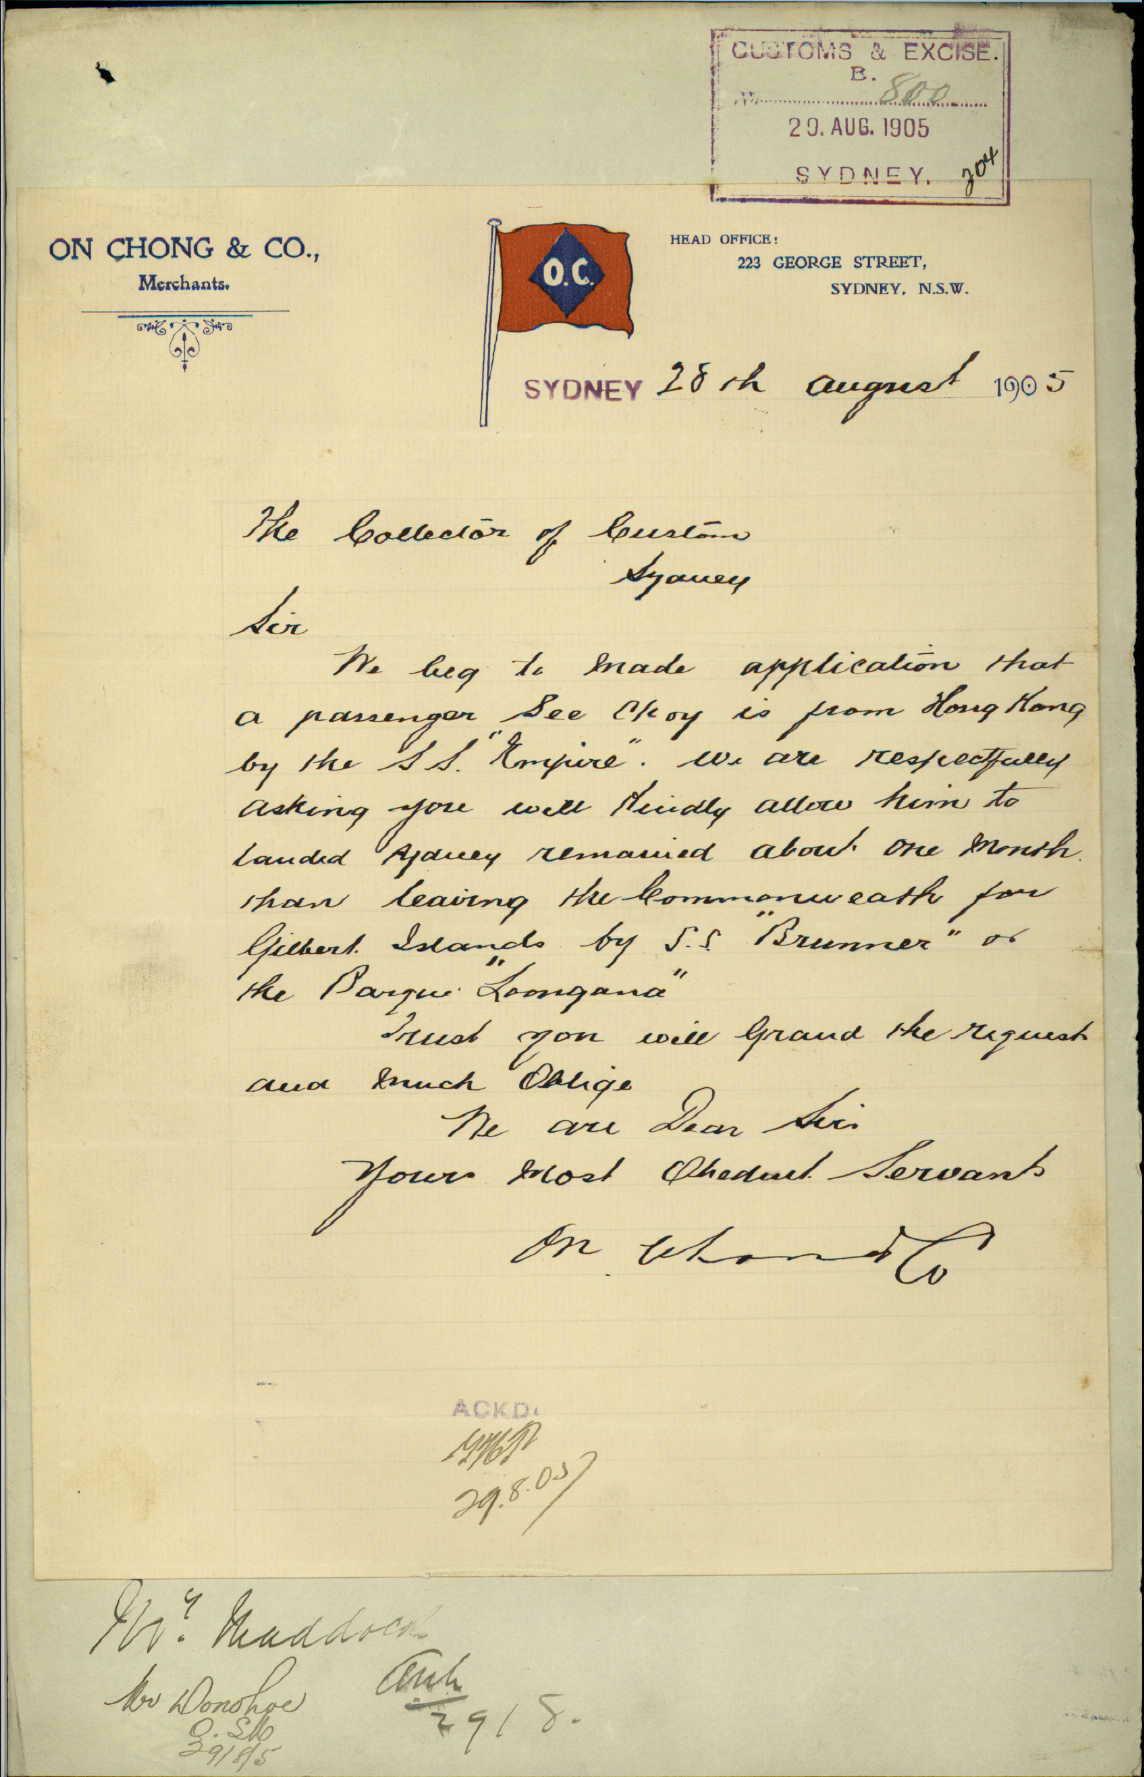 CUSTOMS & EXCISE.
B.
No. 800
29. AUG. 1905
SYDNEY. 204
ON CHONG & CO.,
Merchants.
O.C.
HEAD OFFICE:
223 GEORGE STREET,
SYDNEY, N.S.W.
SYDNEY 28th august 1905
The Collector of Custom
Sydney
Sir
We beg to made application that
a passenger See Choy is from Hong Kong
by the S S. "Empire". We are respectfully
asking you will Kindly allow him to
landed Sydney remained about one Month
than leaving the Commonweath for
Gilbert Islands by S.S "Brunner" or
the Barque "Loongana"
Trust you will Grand the request
and Much Oblige
We are Dear Sir
Yours Most Obedient Servants
On Chong & Co
ACKD.
29.8.05
Mr. Maddock
Mr Donohoe
29/8/5
29/8.